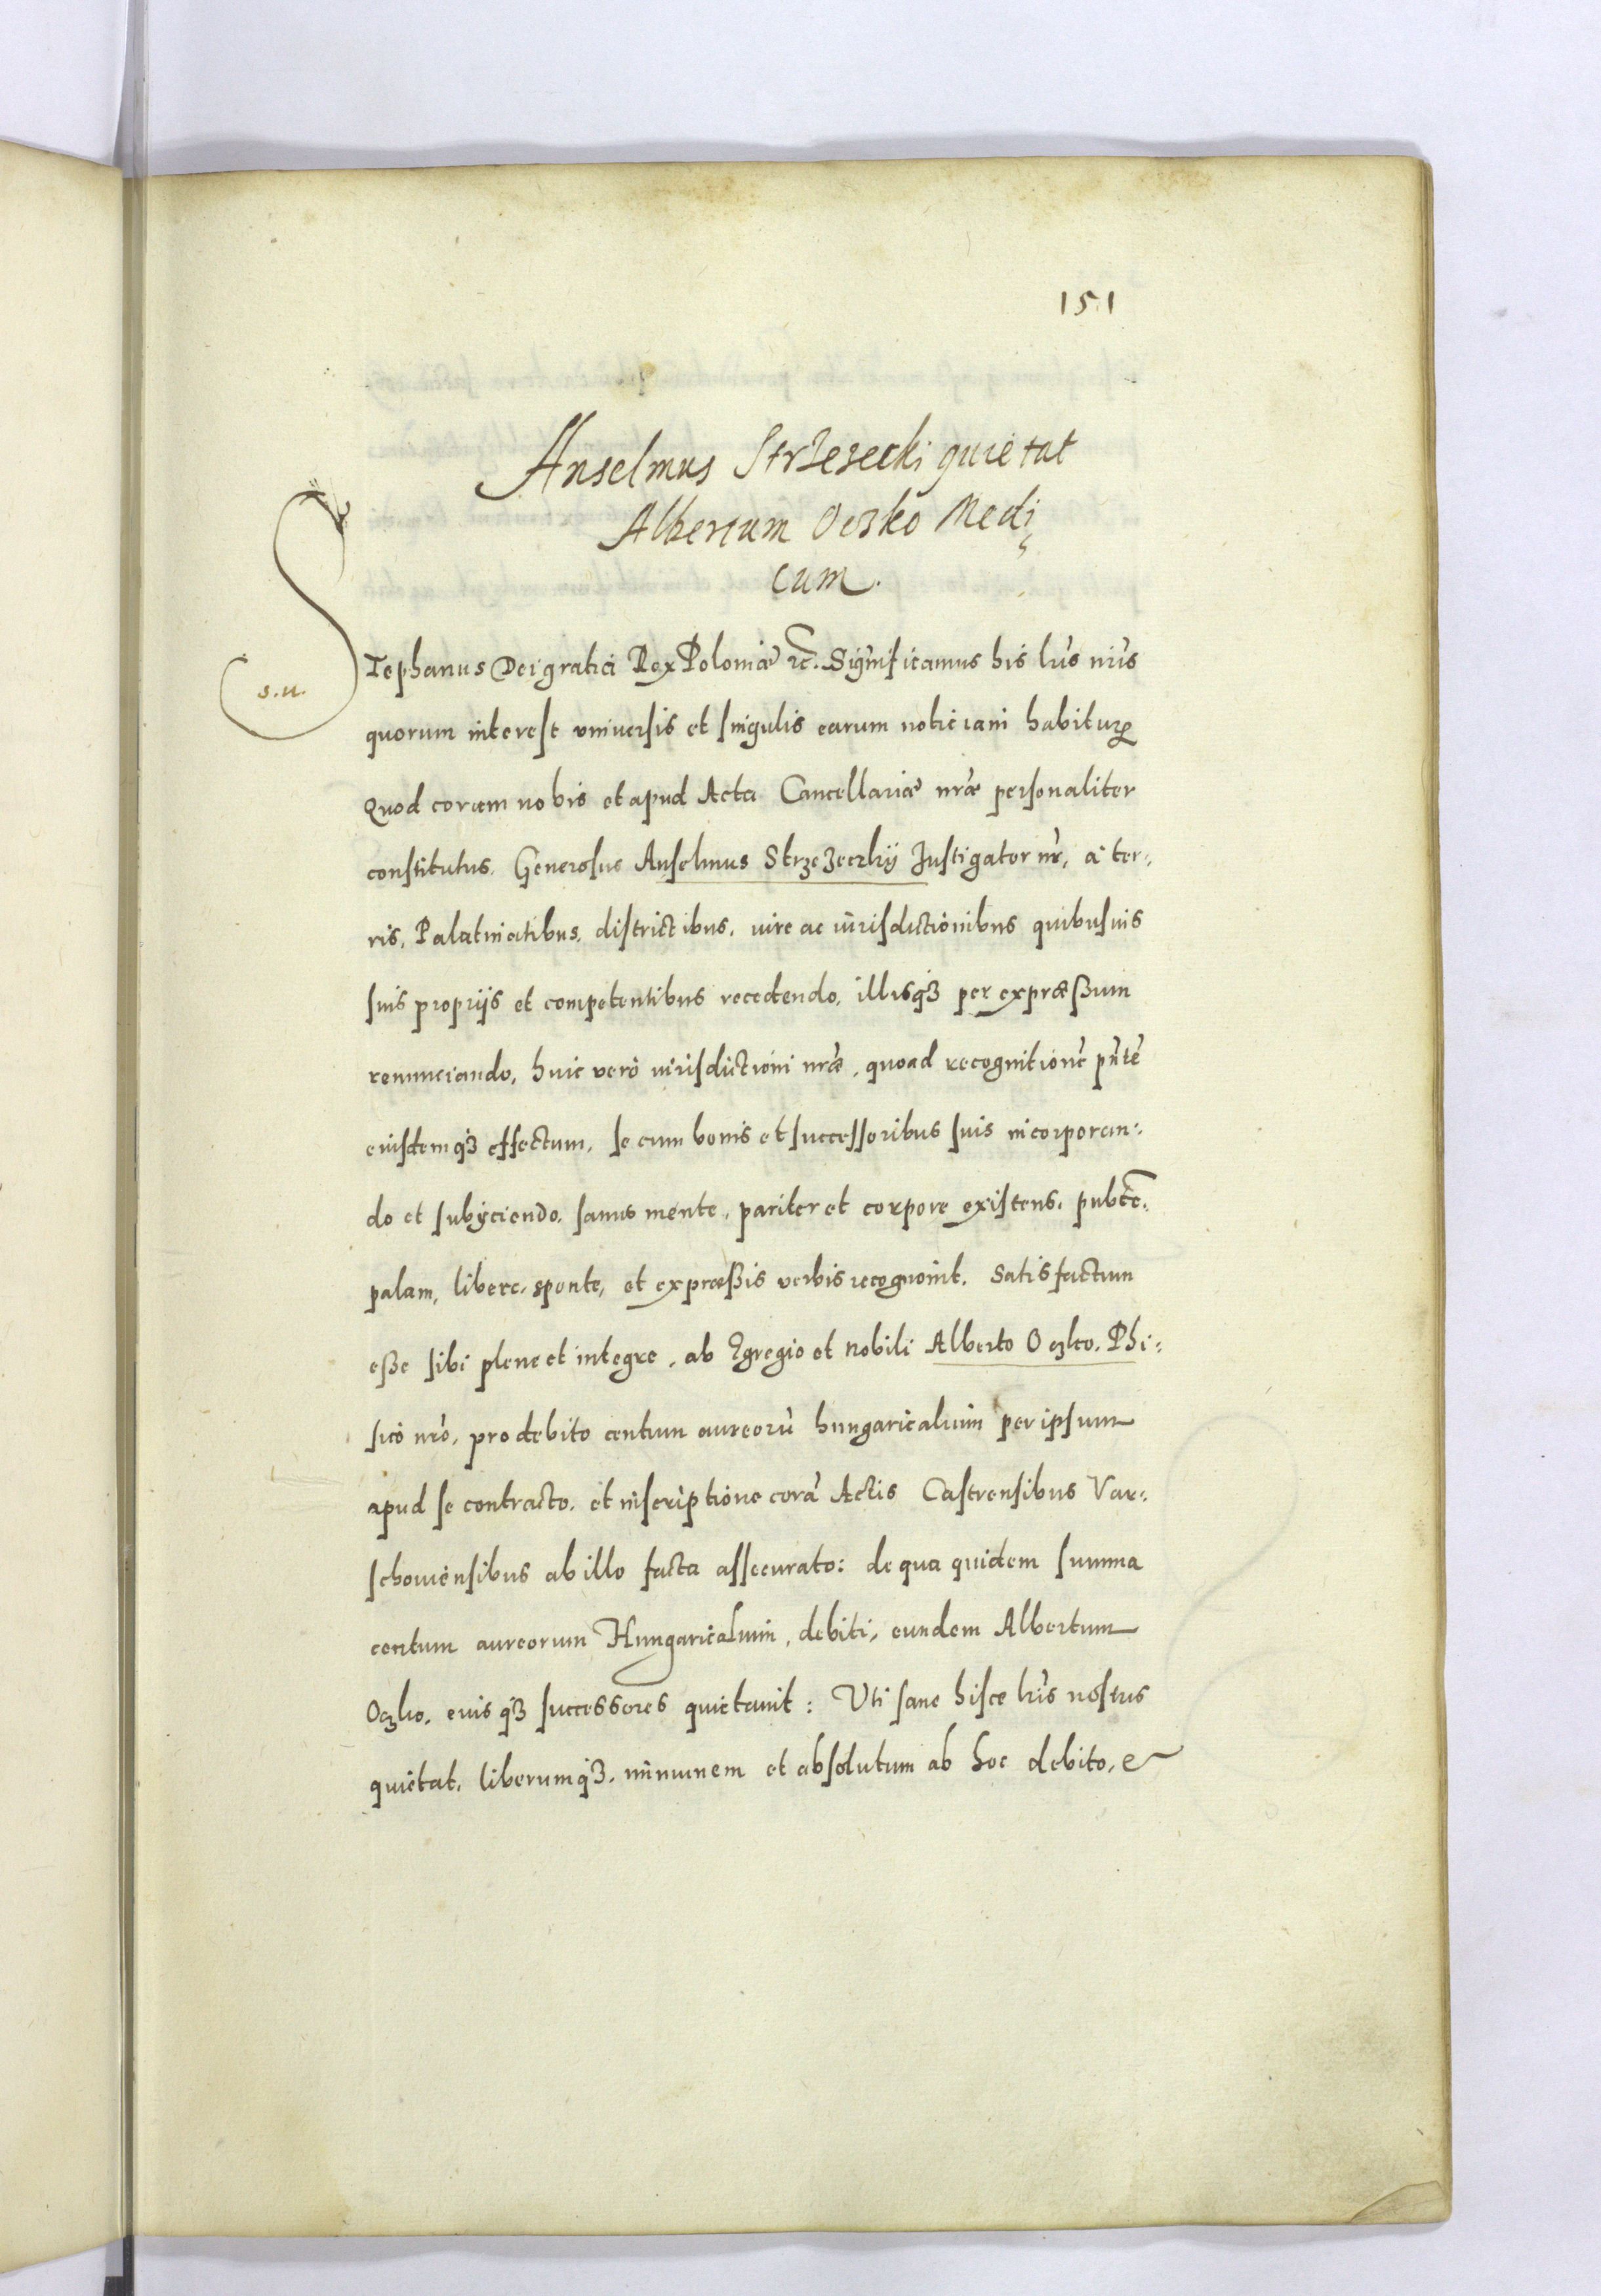 151
Anselmus Strzezecki quietat
Albertum Oczko Medi
cum.
STephanus Dei gratia Rex Poloniæ etc. Significamus his lr̃is nr̃is
s. u.
quorum interest vniuersis et singulis earum noticiam habituris
Quod coram nobis et apud Acta Cancellariæ nr̃æ personaliter
constitutus Generosus Anselmus Strzezeczkÿ Instigator nr̃, à ter:
ris, Palatinatibus, districtibus, iure ac iurisdictionibus quibusuis
suis proprijs et competentibus recedendo, illisq3 per expræßum
renunciando, huic verò iurisdictioni nr̃æ, quoad recognitionẽ pñtẽ
eiusdemq3 effectum, se cum bonis et successoribus suis incorporan:
do et subÿciendo, sanus mente, pariter et corpore existens, publcẽ,
palam, libere, sponte, et expræßis verbis recognouit, Satisfactum
eße sibi plene et integre, ab Egregio et Nobili Alberto Oczko, Phi:
sicò nr̃o, pro debito centum aureorũ hungaricalium per ipsum
apud se contracto, et inscriptione corã Actis Castrensibus Var:
schouiensibus ab illo facta assecurato: de qua quidem summa
centum aureorum Hungaricalium, debiti, eundem Albertum
Oczko, eiusq3 successores quietauit: Vti sane hisce lr̃is nostris
quietat, liberumq3, immunem et absolutum ab hoc debito, e